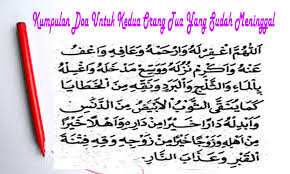 Kumpulan Doa Untuk Kedua Orang Tua Yang Sudah Meninggal
اَللّٰهُمَّ اغْفِرْ لَهُ وَارْحَمْهُ وَعَافِهِ وَاعْفُ
عَنْهُ وَأَكْرِمْ نُزُلَهُ وَوَسِّعْ مَدْخَلَهُ وَاغْسِلْهُ
بِالْمَاءِ وَالثَّلْجِ وَالْبَرَدِ وَنَقِّهِ مِنَ الْخَطَايَا
كَمَا يُنَقَّى الثَّوْبُ الْأَبْيَضُ مِنَ الدَّنَسِ
وَأَبْدِلْهُ دَارًا خَيْرًا مِنْ دَارِهِ وَأَهْلًا خَيْرًا
مِنْ أَهْلِهِ وَزَوْجًا خَيْرًا مِنْ زَوْجِهِ وَقِهِ فِتْنَةَ
الْقَبْرِ وَعَذَابَ النَّارِ.